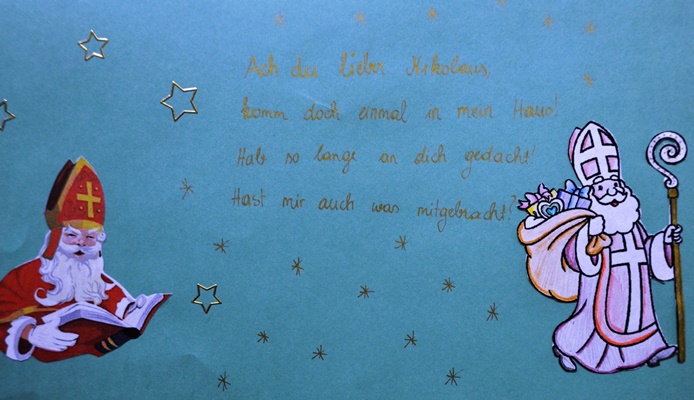 Ach du lieber Nikolaus,
komm doch einmal in mein Haus!
Hab so lange an dich gedacht!
Hast mir auch was mitgebracht?